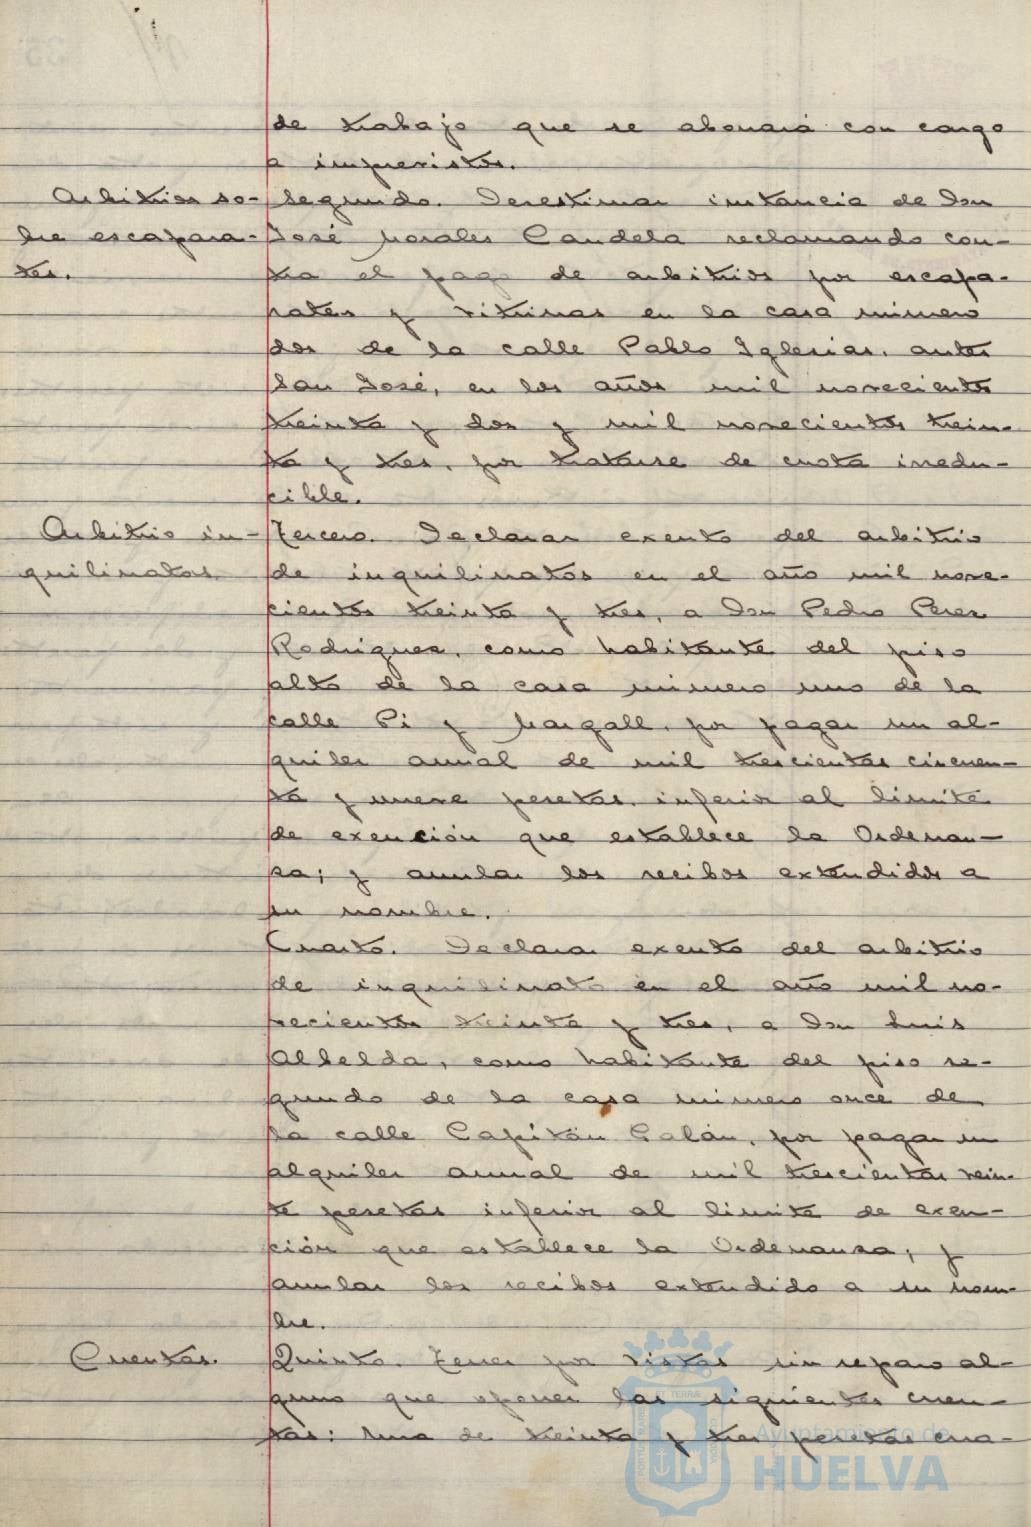 de trabajo que se abonará con cargo
a imprevistos.
Arbitrios so-
bre escapara-
tes.
Segundo. Desestimar instancia de Don
José Morales Candela reclamando con-
tra el pago de arbitrios por escapa-
rates y vitrinas en la casa número
dos de la calle Pablo Iglesias, antes
San José, en los años mil novecientos
treinta y dos y mil novecientos trein-
ta y tres, por tratarse de cuota irredu-
cible.
Arbitrio in-
quilinatos.
Tercero. Declarar exento del arbitrio
de inquilinatos en el año mil nove-
cientos treinta y tres, a Don Pedro Perez
Rodriguez, como habitante del piso
alto de la casa número uno de la
calle Pi y Margall, por pagar un al-
quiler anual de mil trescientas cincuen-
ta y nueve pesetas, inferior al limite
de exención que establece la Ordenan-
za; y anular los recibos extendidos a
su nombre.
Cuarto. Declarar exento del arbitrio
de inquilinato en el año mil no-
vecientos treinta y tres, a Don Luis
Albelda, como habitante del piso se-
gundo de la casa número once de
la calle Capitán Galán, por pagar un
alquiler anual de mil trescientas vein-
te pesetas inferior al limite de exen-
ción que establece la Ordenanza; y
anular los recibos extendido a su nom-
bre.
Cuentas.
Quinto. Tener por vistas sin reparo al-
guno que oponer las siguientes cuen-
tas: Una de treinta y tres pesetas cua-
Ayuntamiento de
HUELVA